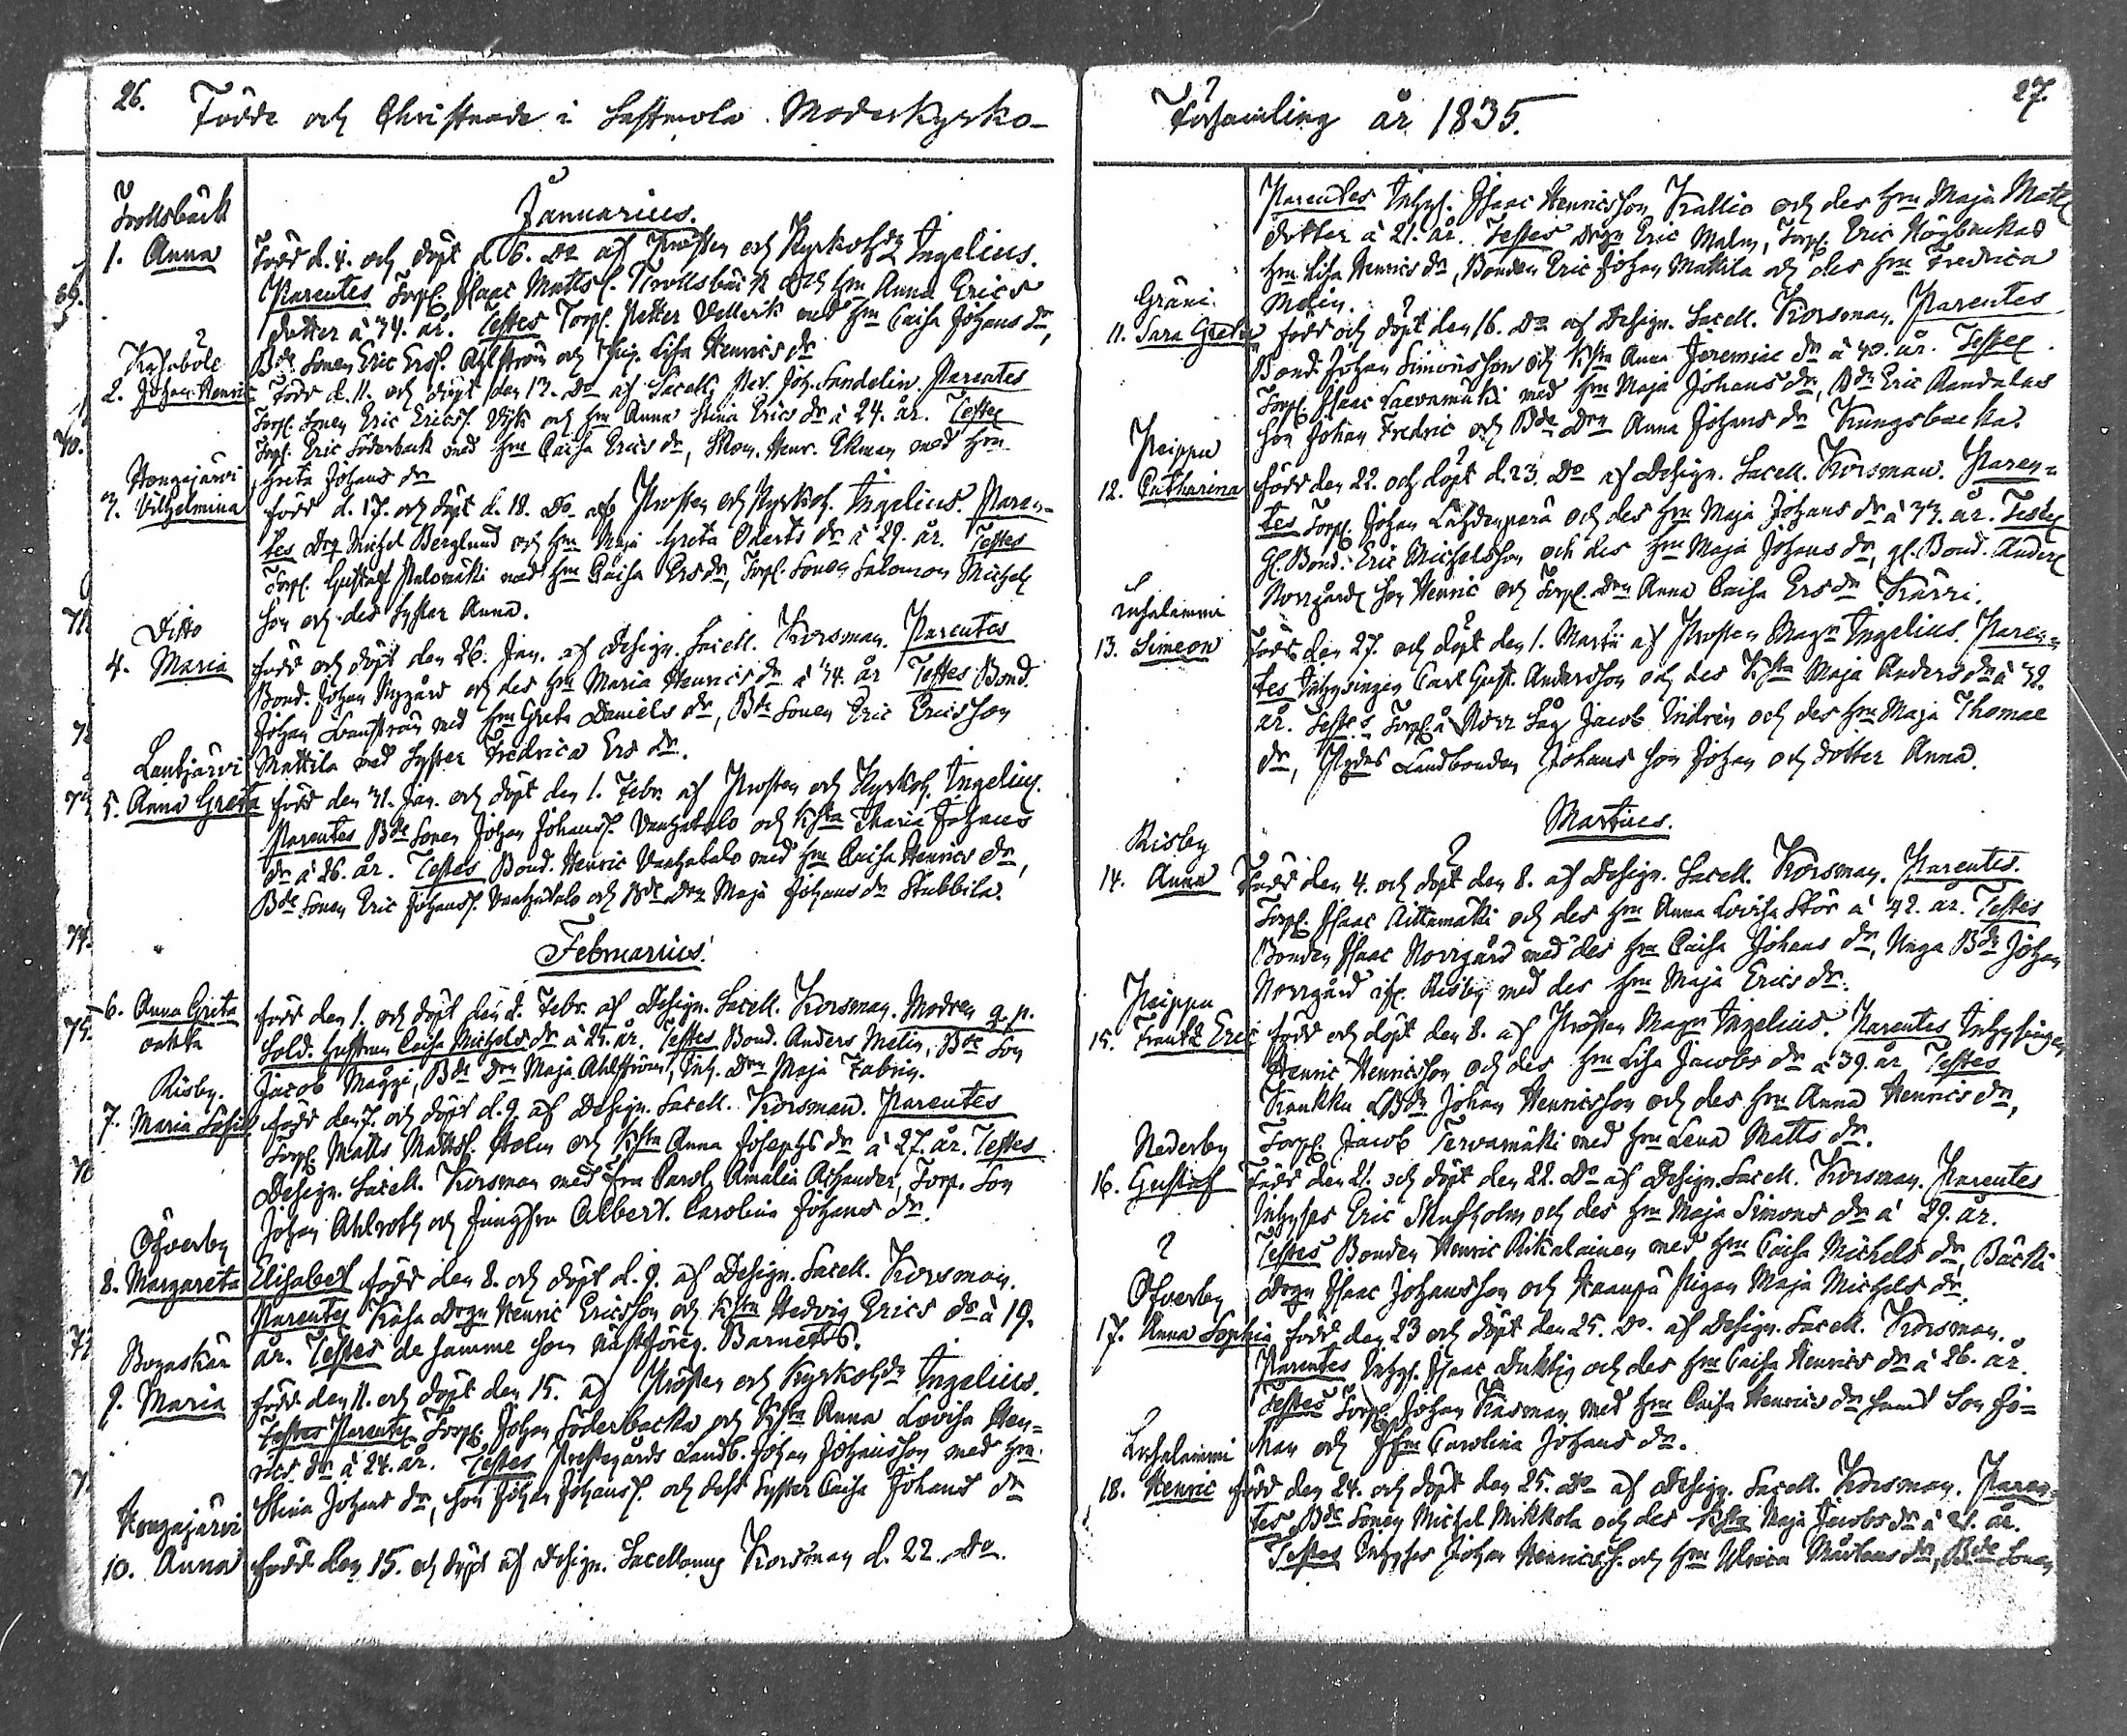 26. Födde och Christnade i Sastmola Moderkyrko-
Trollsbäck
Januarius.
1. Anna Född d. 4. och döpt d. 6. do af Prosten och Kyrkoh. Ingelius.
Parentes Torp. Isaac Matts. Trollsbäck och Hm Anna Erics
dotter à 34. år. Testes Torp. Petter Vellerik med Hm Caisa Johans dr,
Bde Sonen Eric Ers. Ahlström och Pig. Lisa Henrics dr
Kasaböle
2. Johan Henric Född d. 11. och döpt den 13. do af Sacell. Joh. Sandelin. Parentes
Torp. Sonen Eric Erics. och Hm Anna Stina Erics dr à 24. år. Testes
Torp. Eric Söderback med Hm Caisa Erics dr, Henr. Ekman med Hm
Greta Johans dr
Hongajärvi
3. Vilhelmina född d. 17. och döpt d. 18. do. af Prosten och Kyrkoh. Ingelius. Paren-
tes Drg Michel Berglund och Hm Maja Greta à 29. år. Testes
Torp. Gustaf Palomäki med Hm Caisa Ers dr, Torp. Sonen Salomon Michels
son och des Syster Anna.
Ditto
4. Maria född och döpt den 26. Jan. af Design. Sacell. Korsman. Parentes
Bond. Johan Nygård och des Hm Maria Henrics dr à 34. år Testes Bond.
Johan med Hm Greta Daniels dr, Bde Sonen Eric Ericsson
Mattila med Syster Fredrica Ers dr.
Lautjärvi
5. Anna Greta född den 31. Jan. och döpt den 1. Febr. af Prosten och Kyrkoh. Ingelius.
Parentes Bde Sonen Johan Johans. Vanhatalo och Hsta Maria Johans
dr à 26. år. Testes Bond. Henric Vanhatalo med Hm Caisa Henrics dr,
Bde Sonen Eric Johans. Vanhatalo och Bde Drn Maja Johans dr Stubbila.
Februarius.
6. Anna Greta född den 1. och döpt den 2. Febr. af Design. Sacell. Korsman. Modren q. p.
oäkta Sold. Hustrun Caisa Michels dr à 25. år. Testes Bond. Anders Melin, Bde Son
Jacob Maggi, Bde Drn Maja Ahlström, Inh. Drn Maja Fabrin.
Risby.
7. Maria Sofia född den 7. och döpt d. 9. af Design. Sacell. Korsman. Parentes
Torp. Matts Matts. Holm och Hsta Anna Josephs dr à 27. år. Testes
Design. Sacell. Korsman med Fru Carol. Amalia, Torp. Son
Johan Ahlroth och Jungfru Albert. Carolina Johans dr.
Öfverby
8. Margareta Elisabet född den 8. och döpt d. 9. af Design. Sacell. Korsman.
Parentes Kasa Drgn Henric Ericsson och Hsta Hedvig Erics dr à 19.
år. Testes de samme som nästföreg. Barnets.
9. Maria född den 11. och döpt den 15. af Prosten och Kyrkohdn Ingelius.
Testes Parentes Torp. Johan Söderbacka och Hsta Anna Lovisa Hen-
rics dr à 24. år. Testes Prestegårds Landb. Johan Johansson med Hm
Stina Johans dr, son Johan Johans. och dess Syster Caisa Johans dr
Hongajärvi
10. Anna född den 15. och döpt af Design. Sacellanus Korsman d. 22. do.
Församling år 1835. 27.
Parentes Inhys. Isaac Henricsson Kallio och des Hm Maja Matts
dotter à 21. år. Testes Drgn Eric Malm, Torp. Eric Högbackas
Hm Lisa Henrics dr, Bonden Eric Johan Mattila och des Hm Fredrica
Melin.
Gräni
11. Sara Greta född och döpt den 16. do af Design. Sacell. Korsman. Parentes
Bond. Johan Simonsson och Hsta Anna Jeremiae dr à 40. år. Testes
Torp. Isaac med Hm Maja Johans dr, Bdn Eric Randalas
son Johan Fredric och Bde Drn Anna Johans dr Kungsbacka.
Peippu
12. Catharina född den 22. och döpt d. 23. do af Design. Sacell. Korsman. Paren-
tes Torp. Johan Lähdenperä och des Hm Maja Johans dr à 33. år. Testes
Gl. Bond. Eric Michelsson och des Hm Maja Johans dr, gl. Bond. Anders
Norrgårds son Henric och Torp. Drn Anna Caisa Ers dr Kärri.
13. Simeon Född den 27. och döpt den 1. Martii af Prosten Magr Ingelius. Paren-
tes Inhysingen Carl Gust. Andersson och des Hsta Maja Anders dr à 32.
år. Testes Torp. å Norr Såg Jacob och des Hm Maja Thomae
dr, Landbonden Johans son Johan och dotter Anna.
Martius.
Risby
14. Anna Född den 4. och döpt den 8. af Design. Sacell. Korsman. Parentes.
Torp. Isaac Aittamäki och des Hm Anna Lovisa Stör à 42. år. Testes
Bonden Isaac Norrgård med des Hm Caisa Johans dr, Unga Bdn Johan
Norrgård ifr. Risby med des Hm Maja Erics dr.
Peippu
15. Frantz Eric född och döpt den 8. af Prosten Magr Ingelius. Parentes Inhysingen
Henric Henricsson och des Hm Lisa Jacobs dr à 39. år Testes
Krankku Johan Henricsson och des Hm Anna Henrics dr,
Torp. Jacob Tervamäki med Hm Lena Matts dr.
Nederby
16. Gustaf Född den 21. och döpt den 22. do af Design. Sacell. Korsman. Parentes
Inhyses Eric och des Hm Maja Simons dr à 29. år.
Testes Bonden Henric Rikalainen med Hm Caisa Michels dr, Bäcki
Drgn Isaac Johansson och Pigan Maja Michels dr.
Öfverby
17. Anna Sophia född den 23 och döpt den 25. do. af Design. Sacell. Korsman.
Parentes Inhys. Isaac Duktig och des Hm Caisa Henrics dr à 26. år.
Testes Torp. Johan Kasman med Hm Caisa Henrics dr samt Son Jo-
han och Jfru Carolina Johans dr.
18. Henric född den 24. och döpt den 25. do af Design. Sacell. Korsman. Paren-
tes Bde Sonen Michel Mikkola och des Hsta Maja Jacobs dr à 21. år.
Testes Inhyses Johan Henrics. och Hm Ulrica Mårtens dr, Bde Sonen